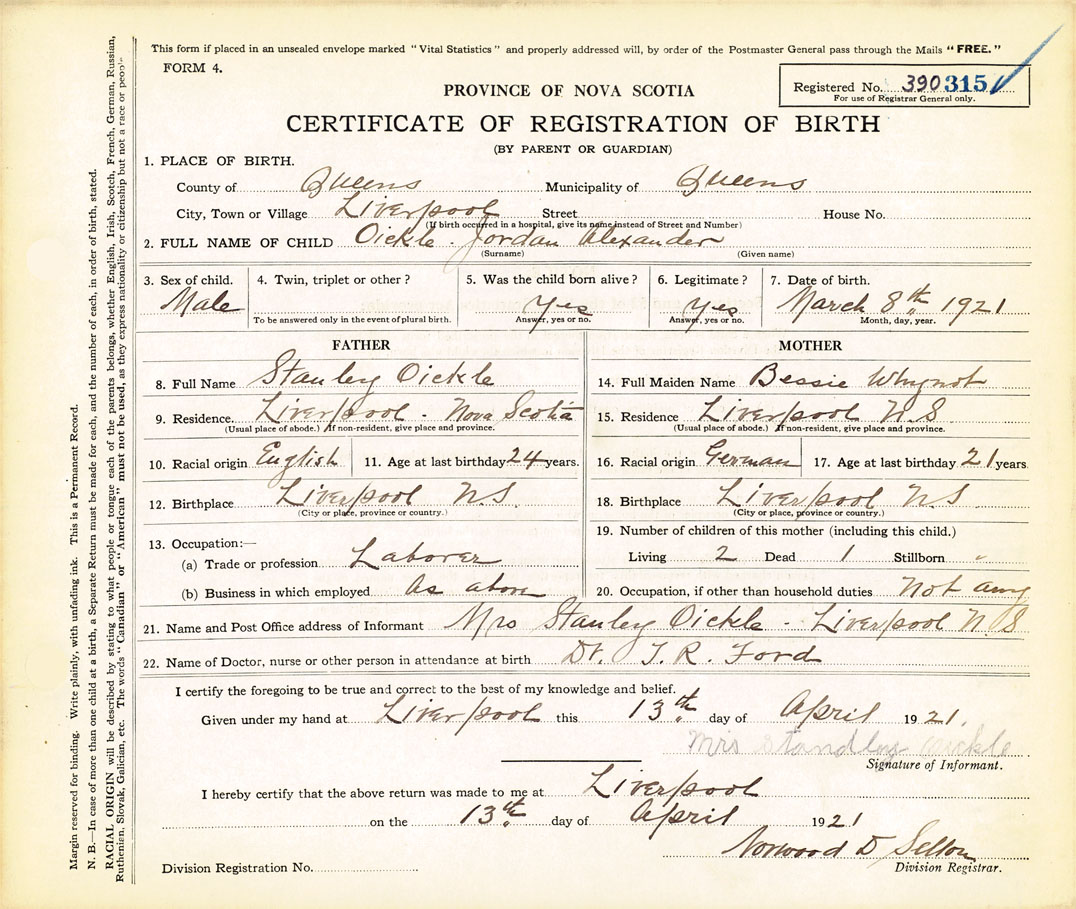 This form if placed in an unsealed envelope marked "Vital Statistics" and properly addressed will, by order of the Postmaster General pass through the Mails "FREE."
FORM 4.
Registered No. 390315
For use of Registrar General only.
PROVINCE OF NOVA SCOTIA
CERTIFICATE OF REGISTRATION OF BIRTH
(BY PARENT OR GUARDIAN)
1. PLACE OF BIRTH.
County of Queens Municipality of Queens
City, Town or Village Liverpool Street House No.
(If birth occurred in a hospital, give its name instead of Street and Number)
2. FULL NAME OF CHILD Oickle - Jordan Alexander
(Surname) (Given name)
3. Sex of child. 4. Twin, triplet or other? 5. Was the child born alive? 6. Legitimate? 7. Date of birth.
Male Yes Yes March 8th 1921
To be answered only in the event of plural birth. Answer, yes or no. Answer, yes or no. Month, day, year.
FATHER
8. Full Name Stanley Oickle
9. Residence. Liverpool - Nova Scotia
(Usual place of abode.) If non-resident, give place and province.
10. Racial origin English 11. Age at last birthday 24 years.
12. Birthplace Liverpool N.S.
(City or place, province or country.)
13. Occupation:—
(a) Trade or profession Laborer
(b) Business in which employed As above
MOTHER
14. Full Maiden Name Bessie Whynot
15. Residence Liverpool N.S
(Usual place of abode.) If non-resident, give place and province.
16. Racial origin German 17. Age at last birthday 21 years
18. Birthplace Liverpool N.S
(City or place, province or country.)
19. Number of children of this mother (including this child.)
Living 2 Dead 1 Stillborn "
20. Occupation, if other than household duties Not any
21. Name and Post Office address of Informant Mrs Stanley Oickle - Liverpool N.S
22. Name of Doctor, nurse or other person in attendance at birth Dr. J. R. Ford
I certify the foregoing to be true and correct to the best of my knowledge and belief.
Given under my hand at Liverpool this 13th day of April 1921.
Mrs Standley Oickle
Signature of Informant.
I hereby certify that the above return was made to me at Liverpool
on the 13th day of April 1921
Norwood D
Division Registration No. Division Registrar.
Margin reserved for binding. Write plainly, with unfading ink. This is a Permanent Record.
N. B.—In case of more than one child at a birth, a Separate Return must be made for each, and the number of each, in order of birth, stated.
RACIAL ORIGIN will be described by stating to what people or tongue each of the parents belongs, whether English, Irish, Scotch, French, German, Russian,
Ruthenian, Slovak, Galician, etc. The words "Canadian" or "American" must not be used, as they express nationality or citizenship but not a race or people